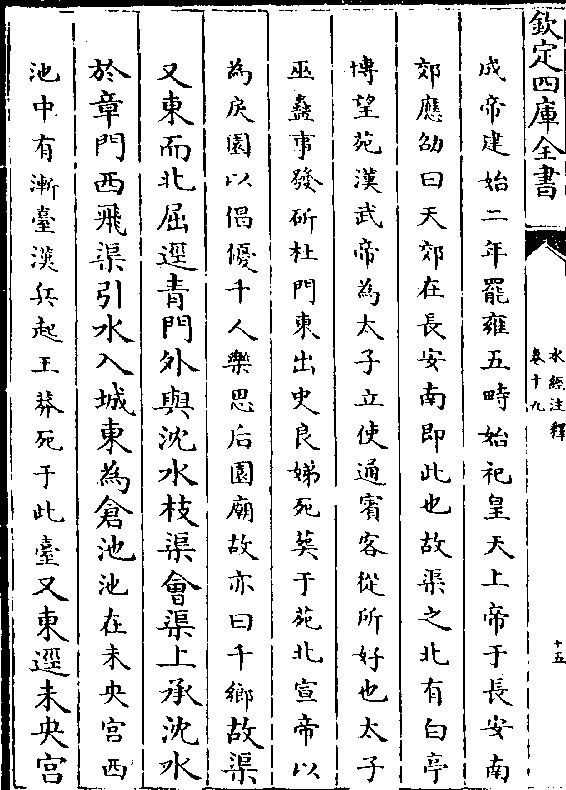 欽定四庫全書
水經注釋
卷十九
十五
成帝建始二年罷雍五畤始祀皇天上帝于長安南
郊應劭曰天郊在長安南即此也故渠之北有白亭
博望苑漢武帝為太子立使通賓客從所好也太子
巫蠱事發斫杜門東出史良娣死葬于苑北宣帝以
為戾園以倡優千人樂思后園廟故亦曰千鄉故渠
又東而北屈逕青門外與沈水枝渠會渠上承沈水
於章門西飛渠引水入城東為倉池池在未央宮西
池中有漸臺漢兵起王莽死于此臺又東逕未央宮